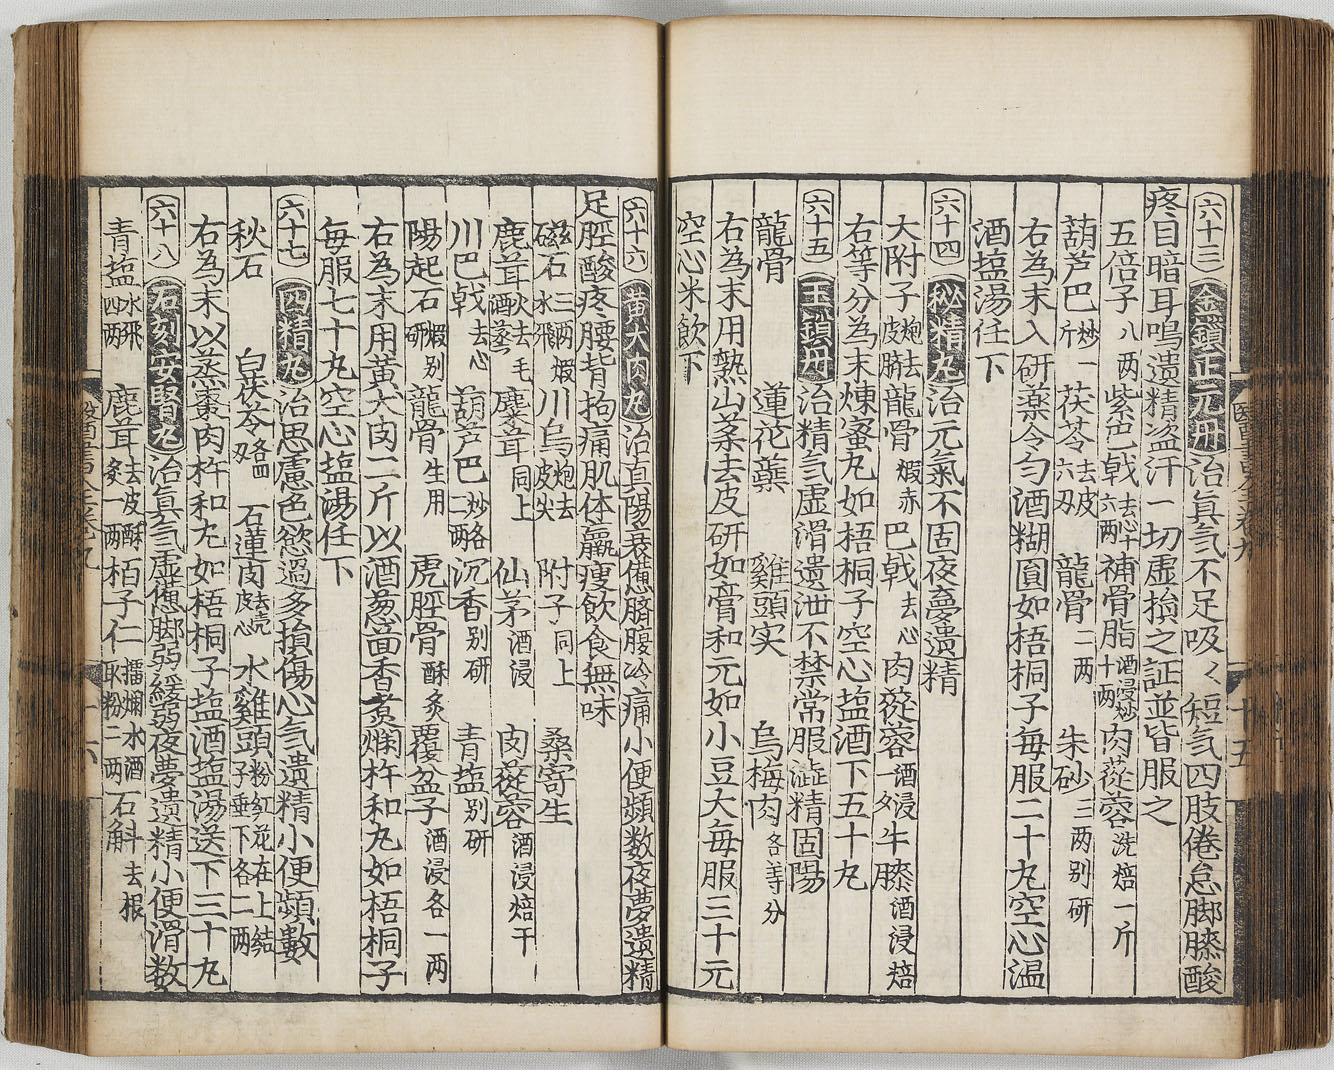 六十三 金鎖正元丹 治眞気不足吸〻短気四肢倦怠脚膝酸
疼目暗耳鳴遺精盗汗一切虚損之証並皆服之
五倍子八两 紫巴戟去心六两 補骨脂酒浸炒十两 肉蓯蓉洗焙一斤
葫芦巴炒一斤 茯苓去皮六刄 龍骨二两 朱砂三两别研
右為末入研薬令匀酒糊圓如梧桐子毎服二十丸空心温
酒塩湯任下
六十四 秘精丸 治元氣不固夜夢遺精
大附子炮去皮臍 龍骨煆赤 巴戟去心 肉蓯蓉酒浸一夕 牛膝酒浸焙
右等分為末煉蜜丸如梧桐子空心塩酒下五十丸
六十五 玉鎖丹 治精气虚滑遺泄不禁常服澁精固陽
龍骨 蓮花蘂 雞頭实 烏梅肉各等分
右為末用熟山薬去皮研如膏和元如小豆大毎服三十元
空心米飲下
六十六 黄犬肉丸 治真陽衰憊臍腹冷痛小便頻数夜夢遺精
足脛酸疼腰背拘痛肌体羸瘦飲食無味
磁石三两煆水飛 川烏炮去皮尖 附子同上 桑寄生
鹿茸火去毛酒蒸 麋茸同上 仙茅酒浸 肉蓯蓉酒浸焙干
川巴戟去心 葫芦巴炒各二两 沉香别研 青塩别研
陽起石煆别研 龍骨生用 虎脛骨酥炙 覆盆子酒浸各一两
右為末用黄犬肉二斤以酒葱茴香煮爛杵和丸如梧桐子
毎服七十丸空心塩湯任下
六十七 四精丸 治思慮色慾過多損傷心気遺精小便頻數
秋石 白茯苓各四刄 石蓮肉去壳皮心 水雞頭粉紅花在上結子垂下各二两
右為末以蒸棗肉杵和丸如梧桐子塩酒塩湯送下三十丸
六十八 石刻安腎丸 治眞気虚憊脚弱緩弱夜夢遺精小便滑数
青塩水飛四两 鹿茸去皮酥炙一两 栢子仁擂爛水酒取粉二两 石斛去根
十五
十六